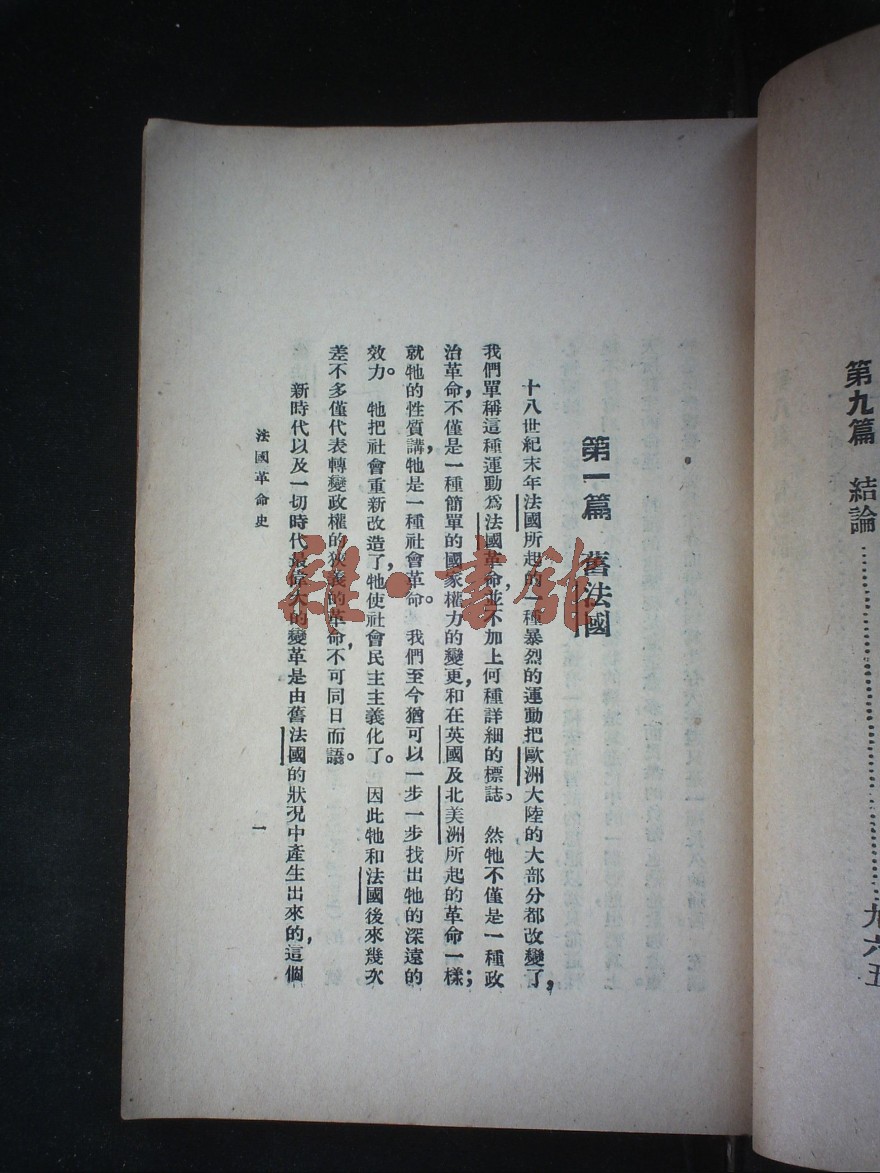 第九篇 結論……………九六五
第一篇 舊法國
十八世紀末年法國所起的一種暴烈的運動把歐洲大陸的大部分都改變了，
我們單稱這種運動爲法國革命，並不加上何種詳細的標誌。然牠不僅是一種政
治革命，不僅是一種簡單的國家權力的變更，和在英國及北美洲所起的革命一樣；
就牠的性質講，牠是一種社會革命。我們至今猶可以一步一步找出牠的深遠的
效力。牠把社會重新改造了，牠使社會民主主義化了。因此牠和法國後來幾次
差不多僅代表轉變政權的狹義的革命，不可同日而語。
新時代以及一切時代最偉大的變革是由舊法國的狀況中產生出來的，這個
法國革命史
一
雜·書館